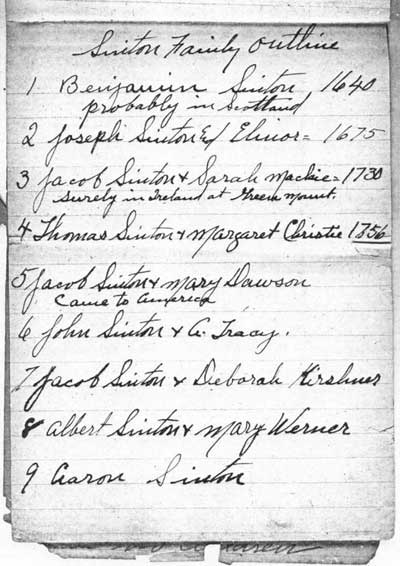 Sinton Family Outline
1 Benjamin Sinton, 1640
probably in Scotland
2 Joseph Sinton & Elinor = 1675
3 Jacob Sinton & Sarah Mackie = 1730
surely in Ireland at Green Mount.
4 Thomas Sinton & Margaret Christie 1756
5 Jacob Sinton & Mary Dawson
Came to America
6 John Sinton & A. Tracy.
7 Jacob Sinton & Deborah Kirshner
8 Albert Sinton & Mary Werner
9 Aaron Sinton